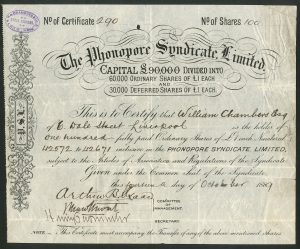 No of Certificate 290 No of Shares 100
The Phonopore Syndicate, Limited
CAPITAL £90,000 DIVIDED INTO
60,000 ORDINARY SHARES OF £1 EACH
AND
30,000 DEFERRED SHARES OF £1 EACH
This is to Certify that William Chambers Esq
of 6. Dale Street Liverpool is the holder of
One hundred fully paid Ordinary Shares of £1 each numbered
42572 to 42671 inclusive in the PHONOPORE SYNDICATE, LIMITED,
subject to the Articles of Association and Regulations of the Syndicate.
Given under the Common Seal of the Syndicate
this fourteenth day of October 1889
COMMITTEE
OF
MANAGEMENT
SECRETARY
Note. This Certificate must accompany the Transfer of any of the above mentioned shares
P.S.L.